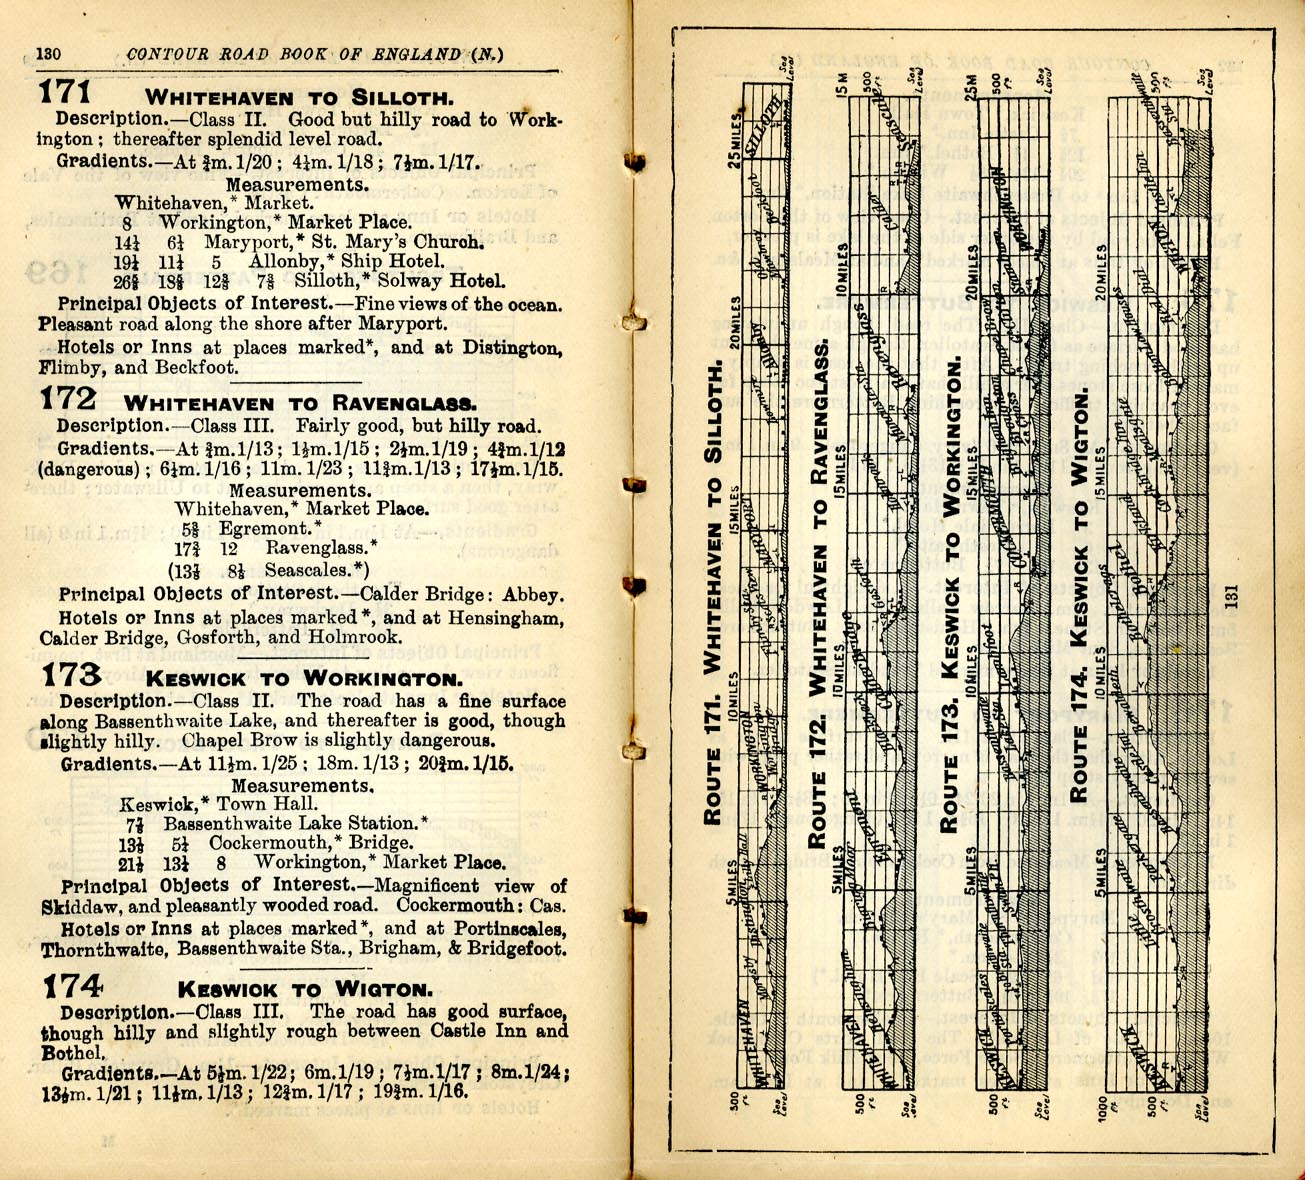 130 CONTOUR ROAD BOOK OF ENGLAND (N.)
171 WHITEHAVEN TO SILLOTH.
Description.—Class II. Good but hilly road to Work-
ington; thereafter splendid level road.
Gradients.—At ¾m. 1/20; 4½m. 1/18; 7½m. 1/17.
Measurements.
Whitehaven,* Market.
8 Workington,* Market Place.
14¼ 6¼ Maryport,* St. Mary's Church.
19¼ 11¼ 5 Allonby,* Ship Hotel.
26⅝ 18⅝ 12⅜ 7⅜ Silloth,* Solway Hotel.
Principal Objects of Interest.—Fine views of the ocean.
Pleasant road along the shore after Maryport.
Hotels or Inns at places marked*, and at Distington,
Flimby, and Beckfoot.
172 WHITEHAVEN TO RAVENGLASS.
Description.—Class III. Fairly good, but hilly road.
Gradients.—At ¾m. 1/13; 1½m. 1/15; 2½m. 1/19; 4¾m. 1/12
(dangerous); 6½m. 1/16; 11m. 1/23; 11¾m. 1/13; 17½m. 1/15.
Measurements.
Whitehaven,* Market Place.
5¾ Egremont.*
17¾ 12 Ravenglass.*
(13⅞ 8⅛ Seascales.*)
Principal Objects of Interest.—Calder Bridge: Abbey.
Hotels or Inns at places marked*, and at Hensingham,
Calder Bridge, Gosforth, and Holmrook.
173 KESWICK TO WORKINGTON.
Description.—Class II. The road has a fine surface
along Bassenthwaite Lake, and thereafter is good, though
slightly hilly. Chapel Brow is slightly dangerous.
Gradients.—At 11½m. 1/25; 18m. 1/13; 20¾m. 1/15.
Measurements.
Keswick,* Town Hall.
7⅞ Bassenthwaite Lake Station.*
13⅛ 5¼ Cockermouth,* Bridge.
21⅛ 13¼ 8 Workington,* Market Place.
Principal Objects of Interest.—Magnificent view of
Skiddaw, and pleasantly wooded road. Cockermouth: Cas.
Hotels or Inns at places marked*, and at Portinscales,
Thornthwaite, Bassenthwaite Sta., Brigham, & Bridgefoot.
174 KESWICK TO WIGTON.
Description.—Class III. The road has good surface,
though hilly and slightly rough between Castle Inn and
Bothel.
Gradients.—At 5½m. 1/22; 6m. 1/19; 7½m. 1/17; 8m. 1/24;
13½m. 1/21; 11½m. 1/13; 12¾m. 1/17; 19¾m. 1/16.
ROUTE 171. WHITEHAVEN TO SILLOTH.
5 MILES 10 MILES 15 MILES 20 MILES 25 MILES
500 ft. Sea Level
WHITEHAVEN Distington WORKINGTON MARYPORT Allonby SILLOTH
Sea Level
ROUTE 172. WHITEHAVEN TO RAVENGLASS.
5 MILES 10 MILES 15 MILES 10 MILES 15 M
500 ft. Sea Level
WHITEHAVEN Hensingham Bigrigg Moor Egremont Calder Bridge Gosforth Holmrook Ravenglass Calder Seascales
500 ft. Sea Level
ROUTE 173. KESWICK TO WORKINGTON.
5 MILES 10 MILES 15 MILES 20 MILES 25 M
500 ft. Sea Level
KESWICK Portinscales COCKERMOUTH Brigham Inn Chapel Brow WORKINGTON
500 ft. Sea Level
ROUTE 174. KESWICK TO WIGTON.
5 MILES 10 MILES 15 MILES 20 MILES
1000 ft. 500 ft. Sea Level
KESWICK Little Crosthwaite Bassenthwaite Castle Inn Bewaldeth Bothel Red Dial WIGTON
500 ft. Sea Level
131